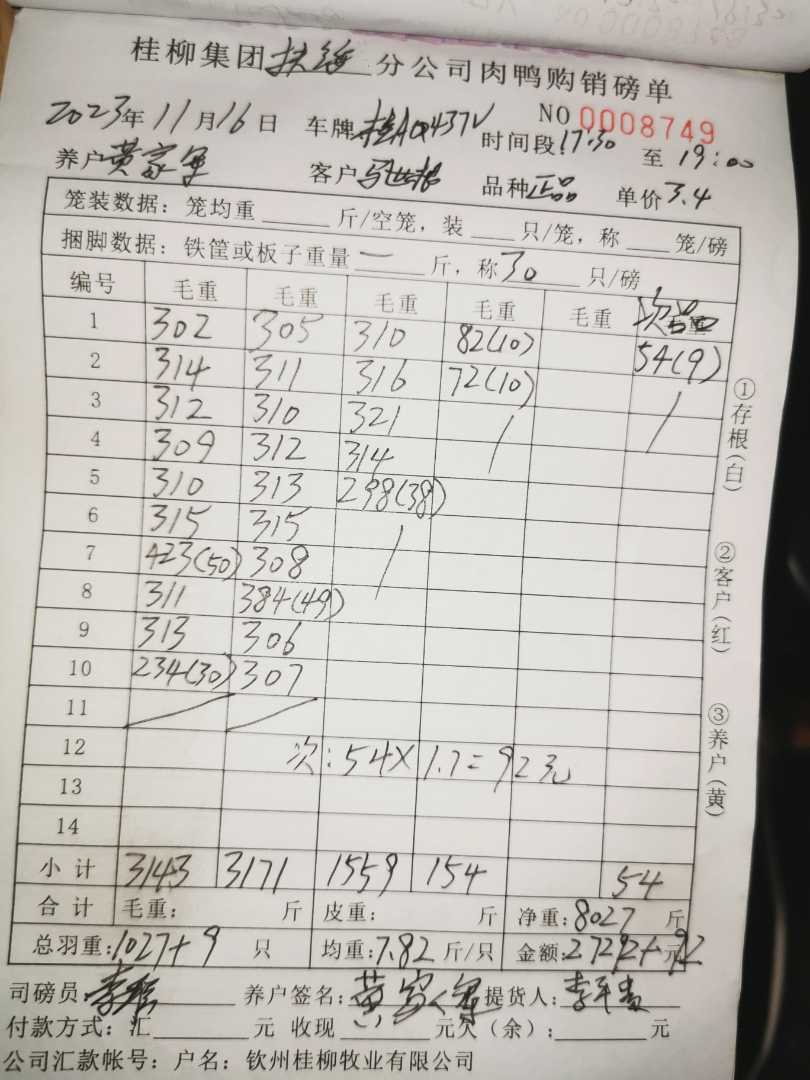 桂柳集团扶绥分公司肉鸭购销磅单
NO 0008749
2023年11月16日 车牌桂AQ437V 时间段17:30 至 19:00
养户黄家军 客户 品种正品 单价3.4
笼装数据：笼均重 斤/空笼，装 只/笼，称 笼/磅
捆脚数据：铁筐或板子重量 一 斤，称30只/磅
编号 毛重 毛重 毛重 毛重 毛重 次品
1 302 305 310 82(10) 54(9)
2 314 311 316 72(10) /
3 312 310 321 /
4 309 312 314
5 310 313 298(38)
6 315 315 /
7 423(50) 308
8 311 384(49)
9 313 306
10 234(30) 307
11 / /
12 次:54×1.7=92元
13
14
小计 3143 3171 1559 154 54
合计 毛重： 斤 皮重： 斤 净重：8027斤
总羽重：1027+9 只 均重：7.82斤/只 金额：27292+92元
司磅员： 养户签名：黄家军 提货人：
付款方式：汇 元 收现 元欠（余）： 元
公司汇款帐号：户名：钦州桂柳牧业有限公司
①存根（白）
②客户（红）
③养户（黄）